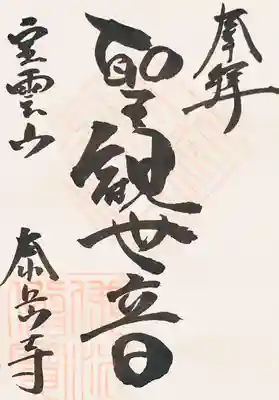 奉拝
聖観世音
雲山
泰岳寺